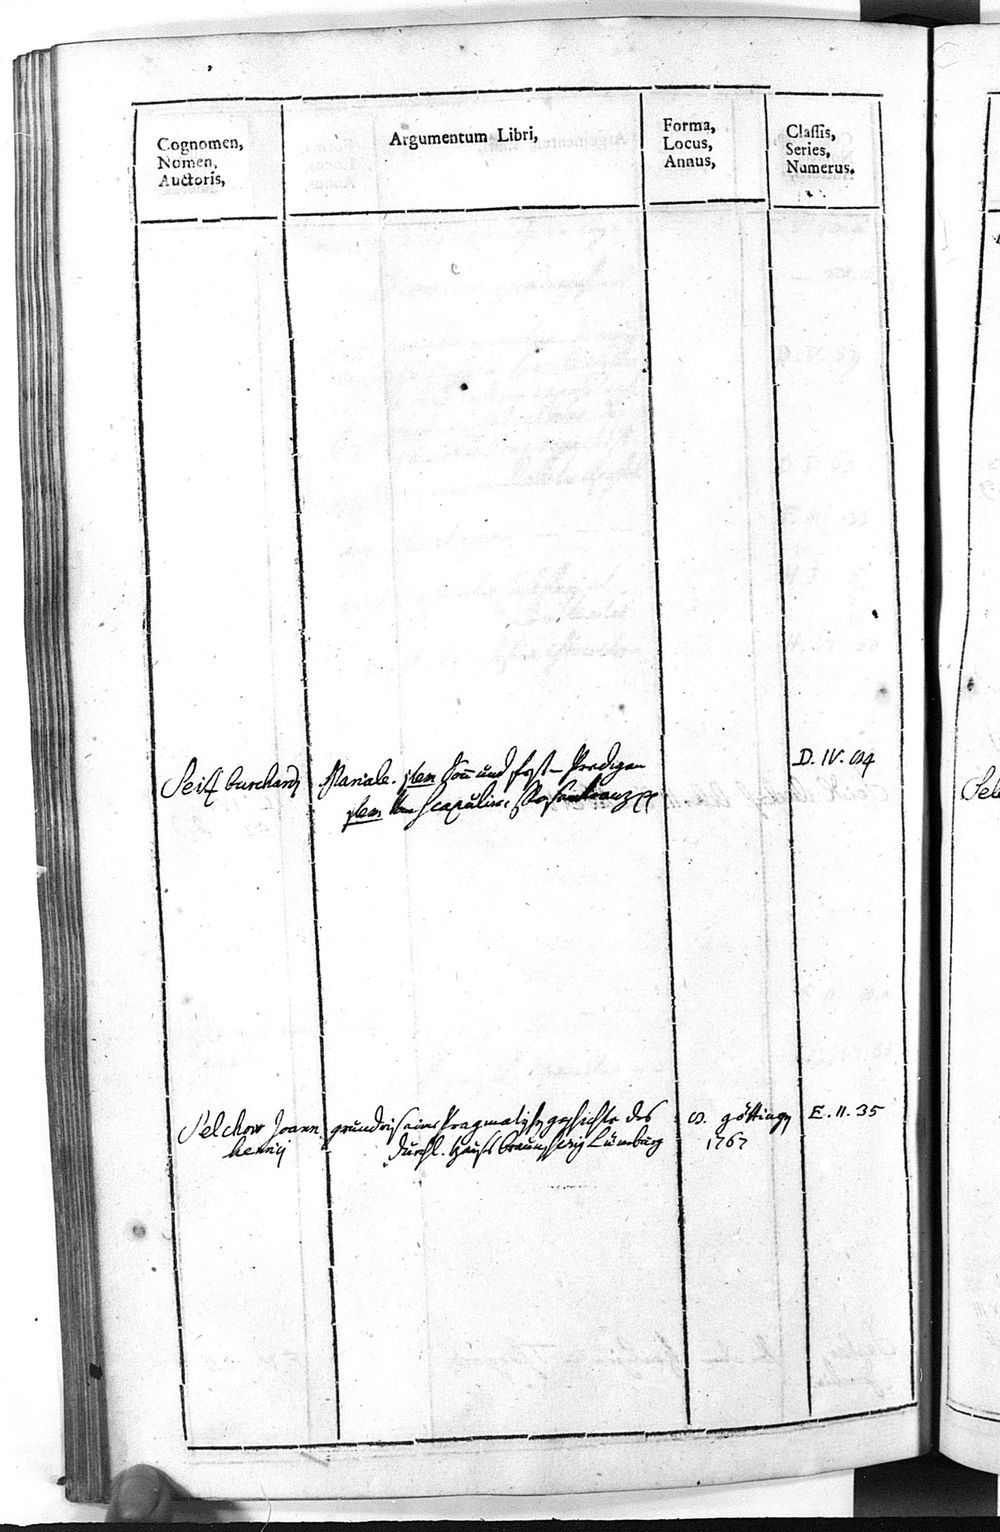 Cognomen,
Nomen,
Auctoris,
Argumentum Libri,
Forma,
Locus,
Annus,
Classis,
Series,
Numerus.
Seift burchard
Mariale. item Son und fest- Predigen
item vom Scapulier, Rosenkranz
D. IV. 94
Selchow Joann
henrij
grundriß einer Pragmatischen geschichte des
Durchl. Hauses braunschweig Lüneburg
8. göttingen
1767
E. II. 35
Sel